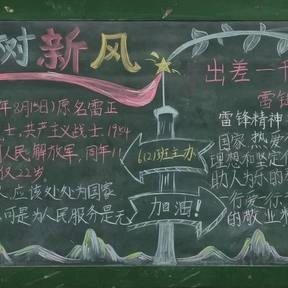 树新风
年8月15日)原名雷正
士,共产主义战士,1954
人民解放军,同年11
仅22岁。
人,应该处处为国家
可是为人民服务是无
612班主办
加油!
出差一千
雷锋
雷锋精神
国家,热爱
理想和坚定信
助人为乐的
行爱一行
的敬业精